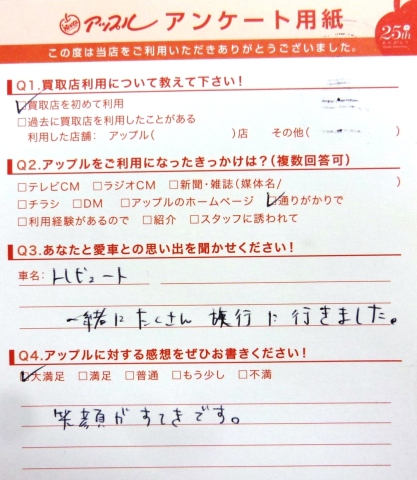 Apple アップル アンケート用紙
25th
この度は当店をご利用いただきありがとうございました。
Q1.買取店利用について教えて下さい!
□買取店を初めて利用
□過去に買取店を利用したことがある
利用した店舗: アップル( )店 その他( )
Q2.アップルをご利用になったきっかけは?(複数回答可)
□テレビCM □ラジオCM □新聞・雑誌(媒体名/ )
□チラシ □DM □アップルのホームページ □通りがかりで
□利用経験があるので □紹介 □スタッフに誘われて
Q3.あなたと愛車との思い出を聞かせください!
車名: トレビュート
一緒にたくさん旅行に行きました。
Q4.アップルに対する感想をぜひお書きください!
□大満足 □満足 □普通 □もう少し □不満
笑顔がすてきです。